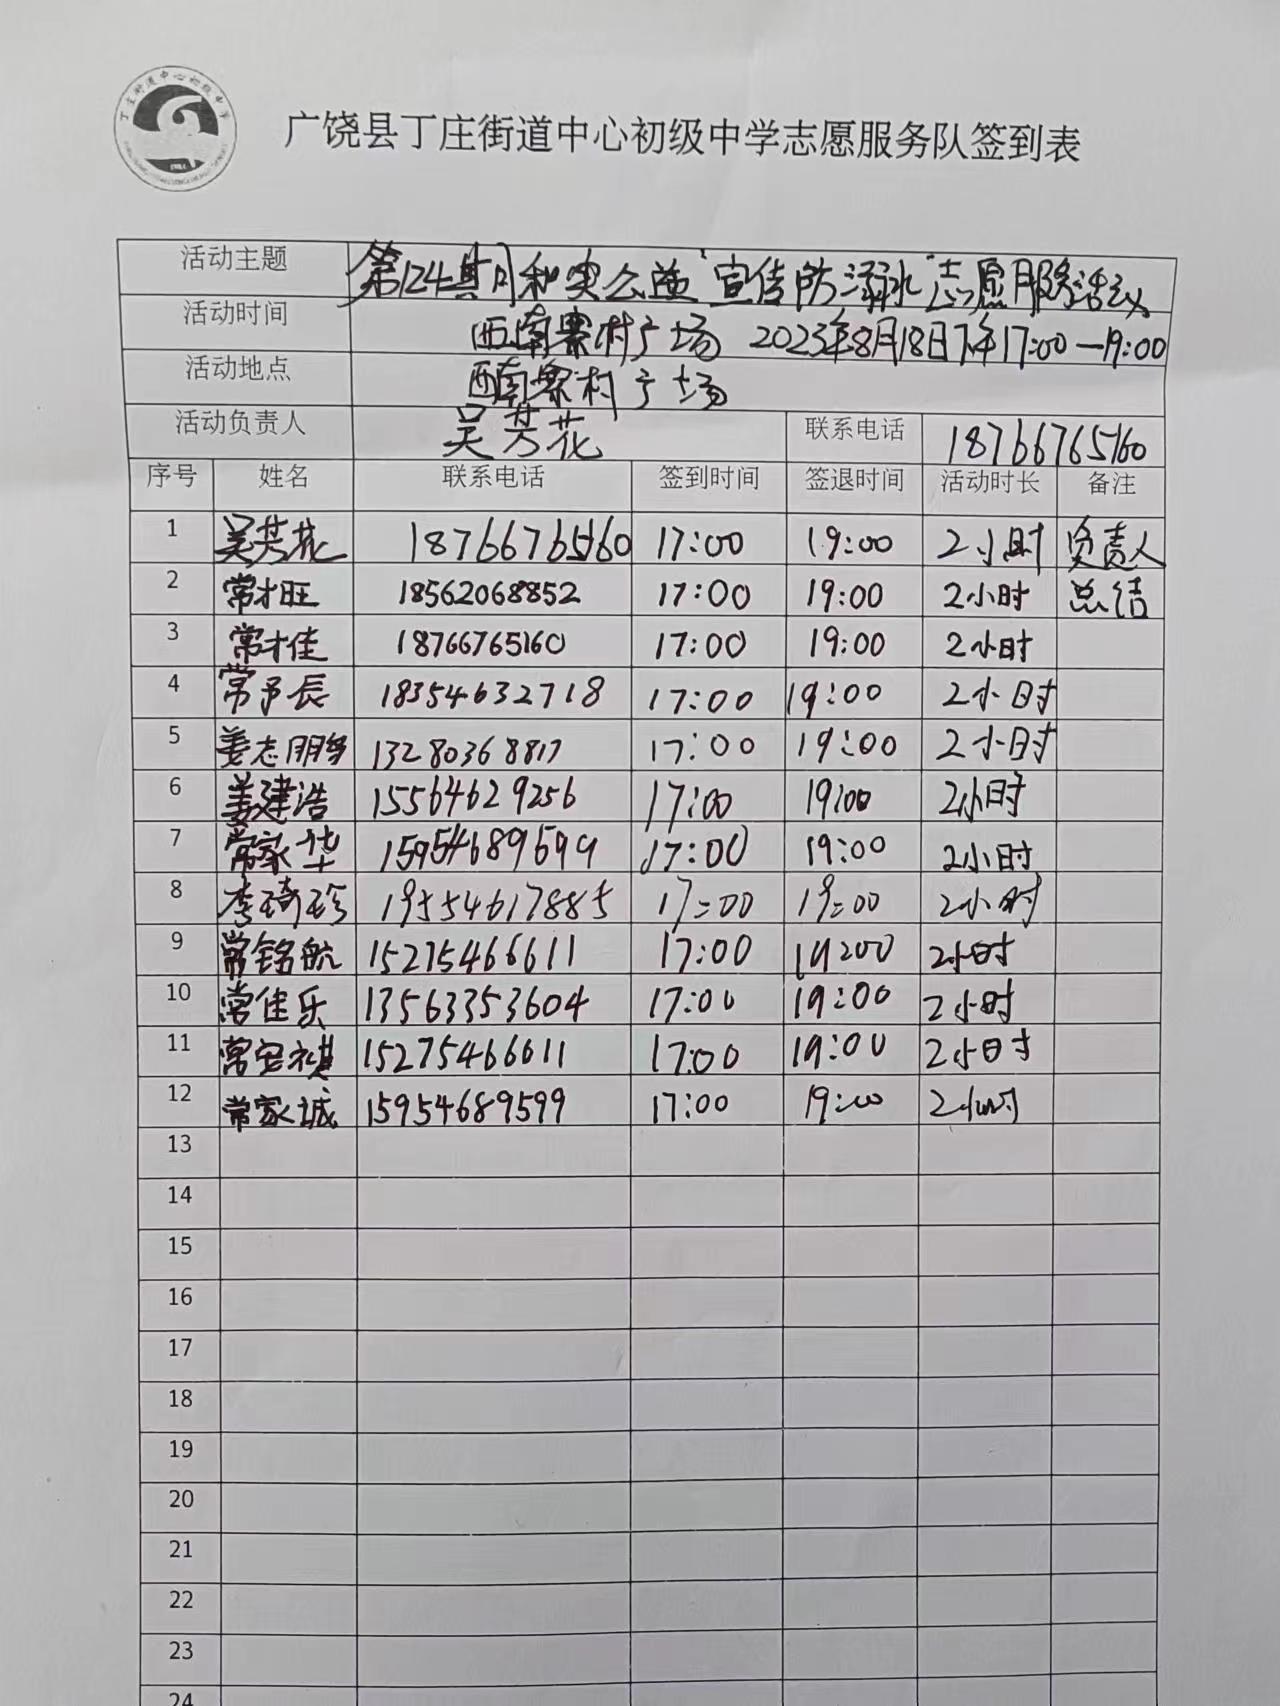 丁庄街道中心初级中学
广饶县丁庄街道中心初级中学志愿服务队签到表
活动主题 第124期和实公益"宣传防溺水"志愿服务活动
活动时间 西南寨村广场 2023年8月18日下午17:00—19:00
活动地点 西南寨村广场
活动负责人 吴芳花 联系电话 18766765160
序号 姓名 联系电话 签到时间 签退时间 活动时长 备注
1 吴芳花 18766765160 17:00 19:00 2小时 负责人
2 常才旺 18562068852 17:00 19:00 2小时 总结
3 常才佳 18766765160 17:00 19:00 2小时
4 常予辰 18354632718 17:00 19:00 2小时
5 姜志鹏 13280368817 17:00 19:00 2小时
6 姜建浩 15564629256 17:00 19:00 2小时
7 常家华 15954689599 17:00 19:00 2小时
8 李琦珍 19554617885 17:00 19:00 2小时
9 常铭航 15275466611 17:00 19:00 2小时
10 常佳乐 13563353604 17:00 19:00 2小时
11 常安祺 15275466611 17:00 19:00 2小时
12 常家诚 15954689599 17:00 19:00 2小时
13
14
15
16
17
18
19
20
21
22
23
24